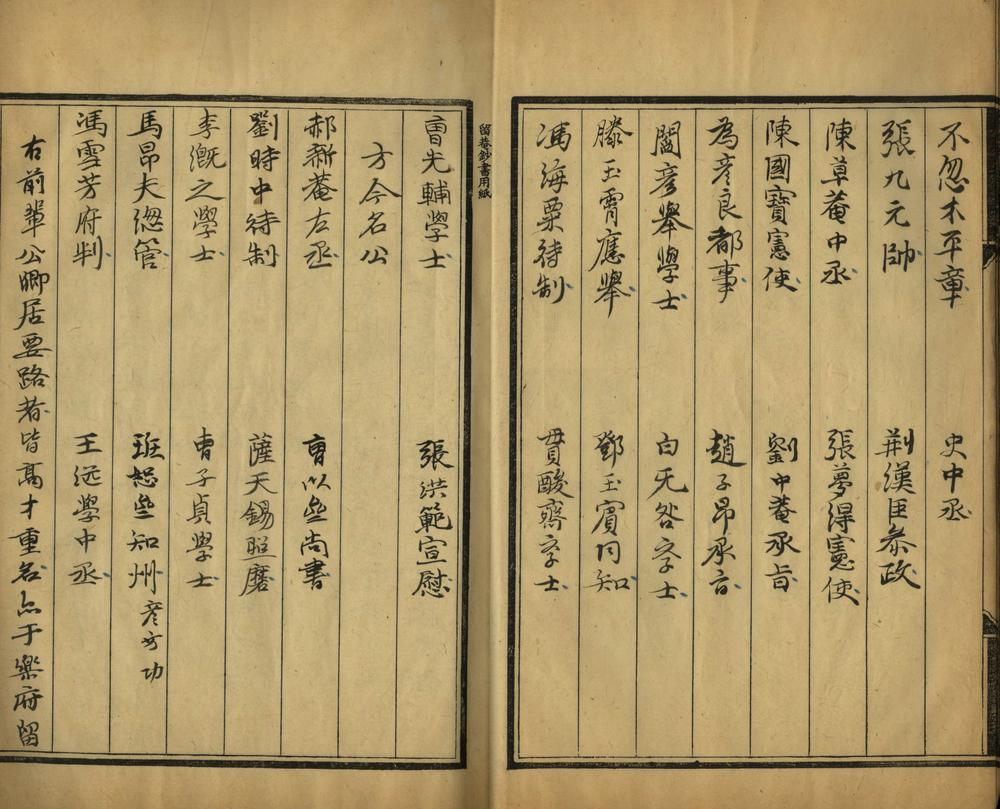 不忽木平章　史中丞
張九元帥　荆漢臣叅政
陳草菴中丞　張夢得憲使
陳國寶憲使　劉中菴承旨
為彦良都事　趙子昂承旨
閻彦舉學士　白无咎学士
滕玉霄應舉　鄧玉賓同知
馮海粟待制　貫酸齋学士
留菴鈔書用紙
曹光輔學士　張洪範宣慰
方今名公
郝新菴左丞　曹以齋尚書
劉時中待制　薩天錫照磨
李溉之學士　曹子貞學士
馬昂夫緫管　班恕齋知州 彦功
馮雪芳府判　王継學中丞
右前輩公卿居要路者皆高才重名亦于樂府留